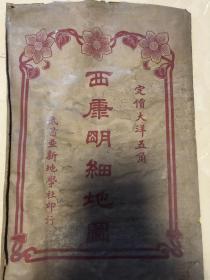 定價大洋五角
西康明細地圖
武昌亞新地學社印行